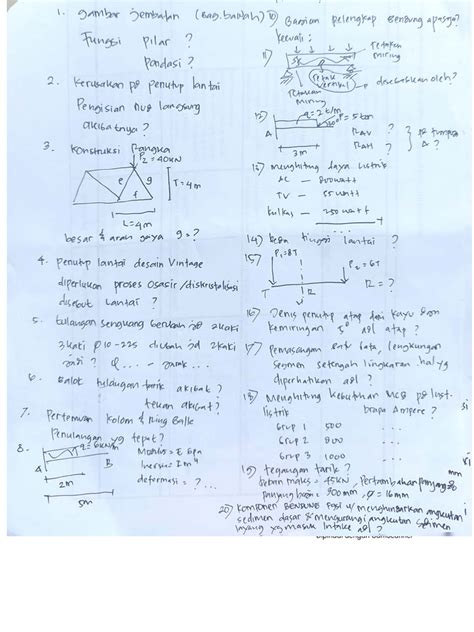 1. gambar jembatan (bag. bawah)
Fungsi pilar ?
Pondasi ?
2. Kerusakan pd penutup lantai
Pengisian nus langsung
akibatnya ?
3. Konstruksi Rangka
P2 = 40 KN
e g
f
T = 4 m
L = 4 m
besar & arah gaya g = ?
4. Penutup lantai desain Vintage
diperlukan proses
disebut Lantai ?
5. tulangan sengkang berubah jd 2 kaki
3 kaki P10-225 diubah jd 2 kaki
jadi ? Q ... - Jarak ...
6. Balok tulangan tarik akibat ?
tekan akibat ?
7. Pertemuan Kolom & Ring Balk
Penulangan yg tepat ?
8.
A B
2m
5m
Modulus = E Gpa
Inersia = I m4
deformasi = ?
10) Bagian pelengkap Bendung apa saja?
kecuali :
11)
Retakan miring
Retak Vertikal
disebabkan oleh ?
Retakan miring
12) q = 2 t/m
P = 5 ton
A
3 m
RAV ?
RAH ?
di tumpuan
A ?
13) menghitung daya listrik
AC — 800 watt
TV — 55 watt
Kulkas — 250 watt
14) beda tinggi lantai ?
15) P1 = 8T
P2 = 6T
T
R
R = ?
16) Jenis penutup atap dari kayu dgn
kemiringan 5° adl atap ?
17) Pemasangan bata, lengkungan
segmen setengah lingkaran. hal yg
diperhatikan adl ?
18) Menghitung kebutuhan MCB pd Inst.
listrik brapa Ampere ?
Grup 1 500
Grup 2 800
Grup 3 1000
19) tegangan tarik ?
beban maks = 45 KN, Pertambahan panjang
panjang baja = 300 mm, Ø = 16 mm
20) Komponen BENDUNG Fgsi u/ menghambatkan angkutan
sedimen dasar & mengurangi angkutan sedimen
layang yg masuk Intake adl ?
si
ri